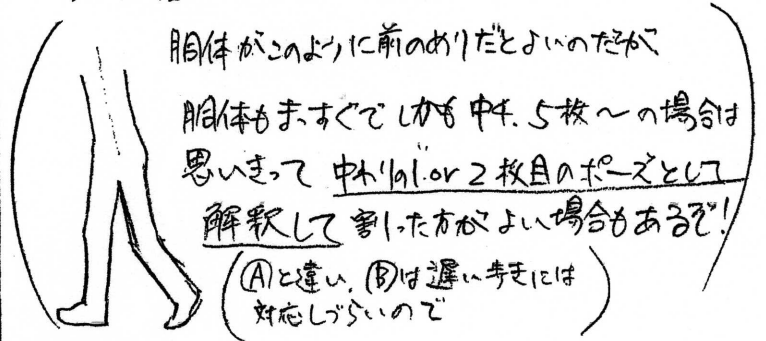 胴体がこのように前のめりだとよいのだが、
胴体もまっすぐで しかも 中4、5枚〜の場合は
思いきって 中わりの1. or 2枚目のポーズとして
解釈して 割った方が よい場合もあるぞ!
(Ⓐと違い、Ⓑは遅い歩きには
対応しづらいので)